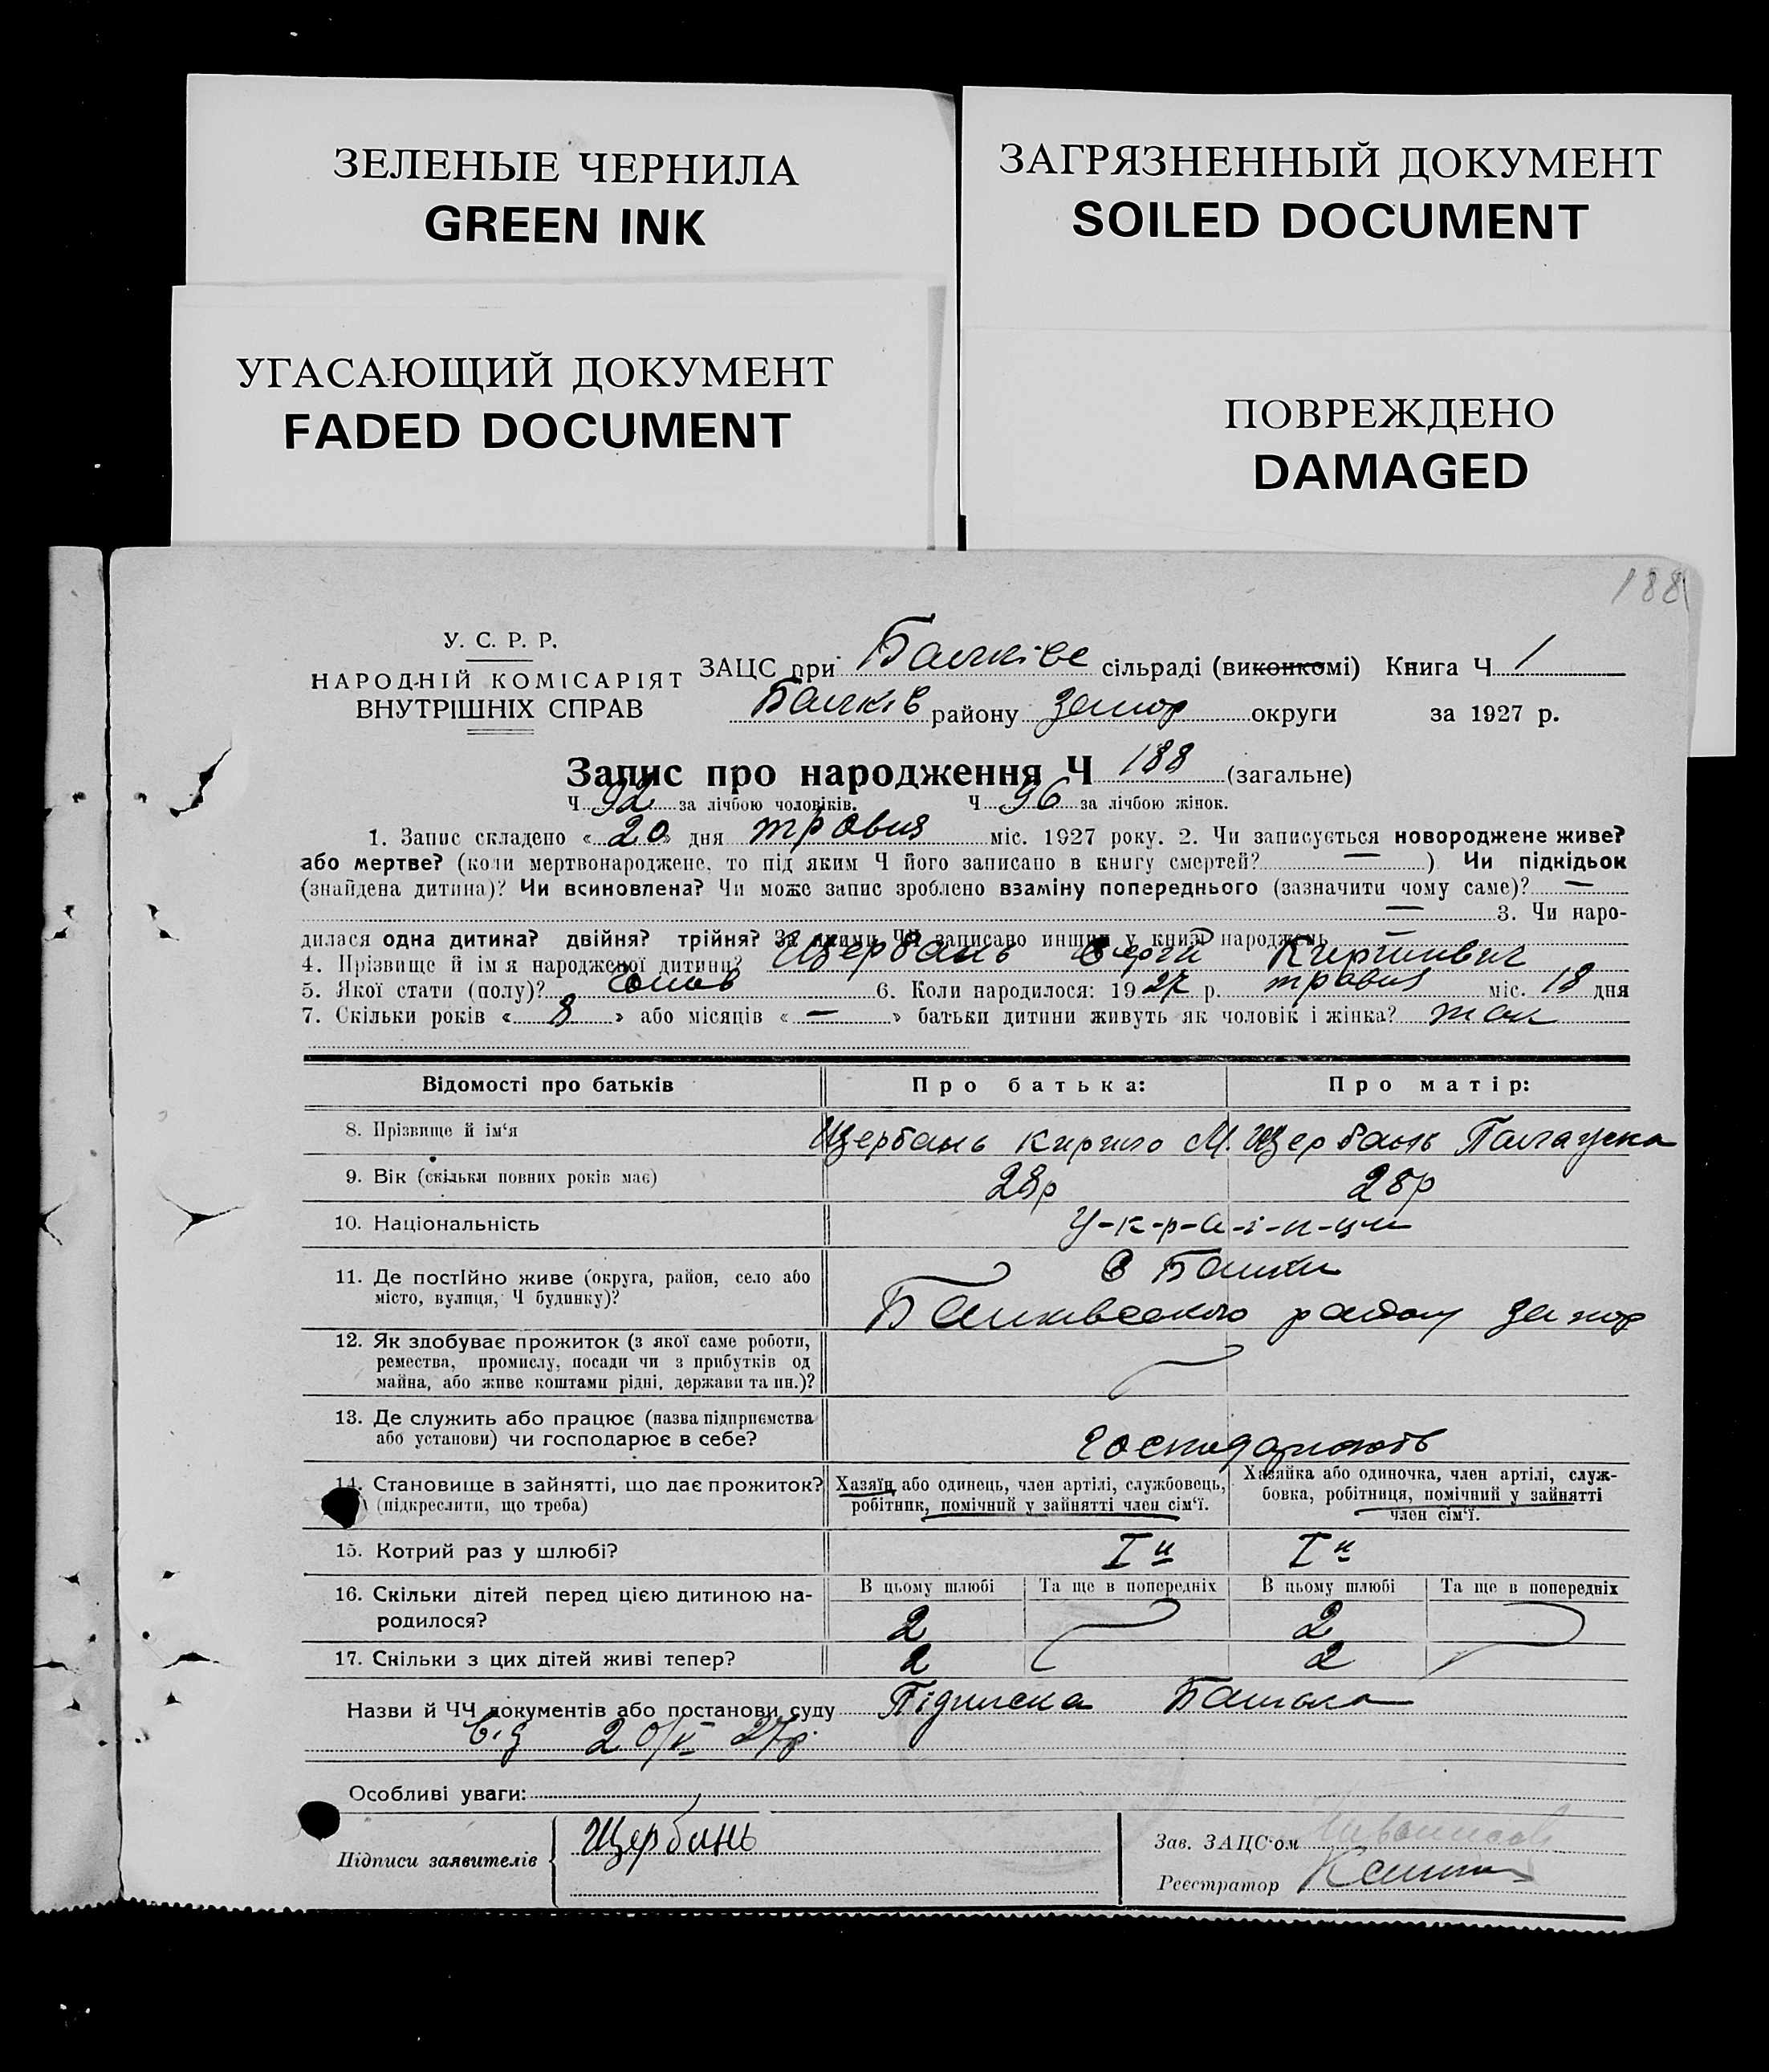 ЗЕЛЕНЫЕ ЧЕРНИЛА
GREEN INK
ЗАГРЯЗНЕННЫЙ ДОКУМЕНТ
SOILED DOCUMENT
УГАСАЮЩИЙ ДОКУМЕНТ
FADED DOCUMENT
ПОВРЕЖДЕНО
DAMAGED
188
У. С. Р. Р.
НАРОДНІЙ КОМІСАРІЯТ
ВНУТРІШНІХ СПРАВ
ЗАЦС при Балківс сільраді (виконкомі) Книга Ч 1
Балків району запор округи за 1927 р.
Запис про народження Ч 188 (загальне)
Ч 92 за лічбою чоловіків. Ч 96 за лічбою жінок.
1. Запис складено « 20 » дня травня міс. 1927 року. 2. Чи записується новороджене живе?
або мертве? (коли мертвонароджене, то під яким Ч його записано в книгу смертей? — ) Чи підкідьок
(знайдена дитина)? Чи всиновлена? Чи може запис зроблено взаміну попереднього (зазначити чому саме)? —
— 3. Чи наро-
дилася одна дитина? двійня? трійня? За якими ЧЧ записано инших у книзі народжень
4. Прізвище й ім'я народженої дитини? Щербань Сергій Кирилович
5. Якої стати (полу)? чолов 6. Коли народилося: 1927 р. травня міс. 18 дня
7. Скільки років « 8 » або місяців « — » батьки дитини живуть як чоловік і жінка? так
Відомості про батьків Про батька: Про матір:
8. Прізвище й ім'я Щербань Кирило М. Щербань
9. Вік (скільки повних років має) 28р 28р
10. Національність У-к-р-а-ї-н-ці
11. Де постійно живе (округа, район, село або
місто, вулиця, Ч будинку)?
с Балки
Балківського району запор
12. Як здобуває прожиток (з якої саме роботи,
ремества, промислу, посади чи з прибутків од
майна, або живе коштами рідні, держави та ин.)?
13. Де служить або працює (назва підприємства
або установи) чи господарює в себе?
господарюють
14. Становище в зайнятті, що дає прожиток?
(підкреслити, що треба)
Хазяїн або одинець, член артілі, службовець,
робітник, помічний у зайнятті член сім'ї.
Хазяйка або одиночка, член артілі, служ-
бовка, робітниця, помічний у зайнятті
член сім'ї.
15. Котрий раз у шлюбі? I й I й
16. Скільки дітей перед цією дитиною на-
родилося?
В цьому шлюбі Та ще в попередніх В цьому шлюбі Та ще в попередніх
2 2
17. Скільки з цих дітей живі тепер? 2 2
Назви й ЧЧ документів або постанови суду Підписка Батька
від 20/V 27р
Особливі уваги:
Підписи заявителів Щербань
Зав. ЗАЦС'ом
Реєстратор